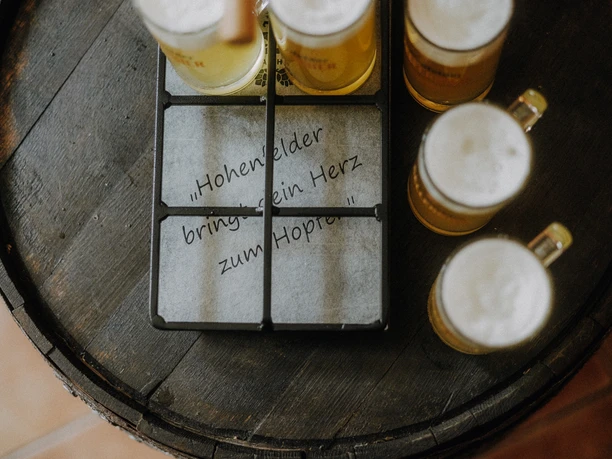 „Hohenfelder
bringt Dein Herz
zum Hopfen"